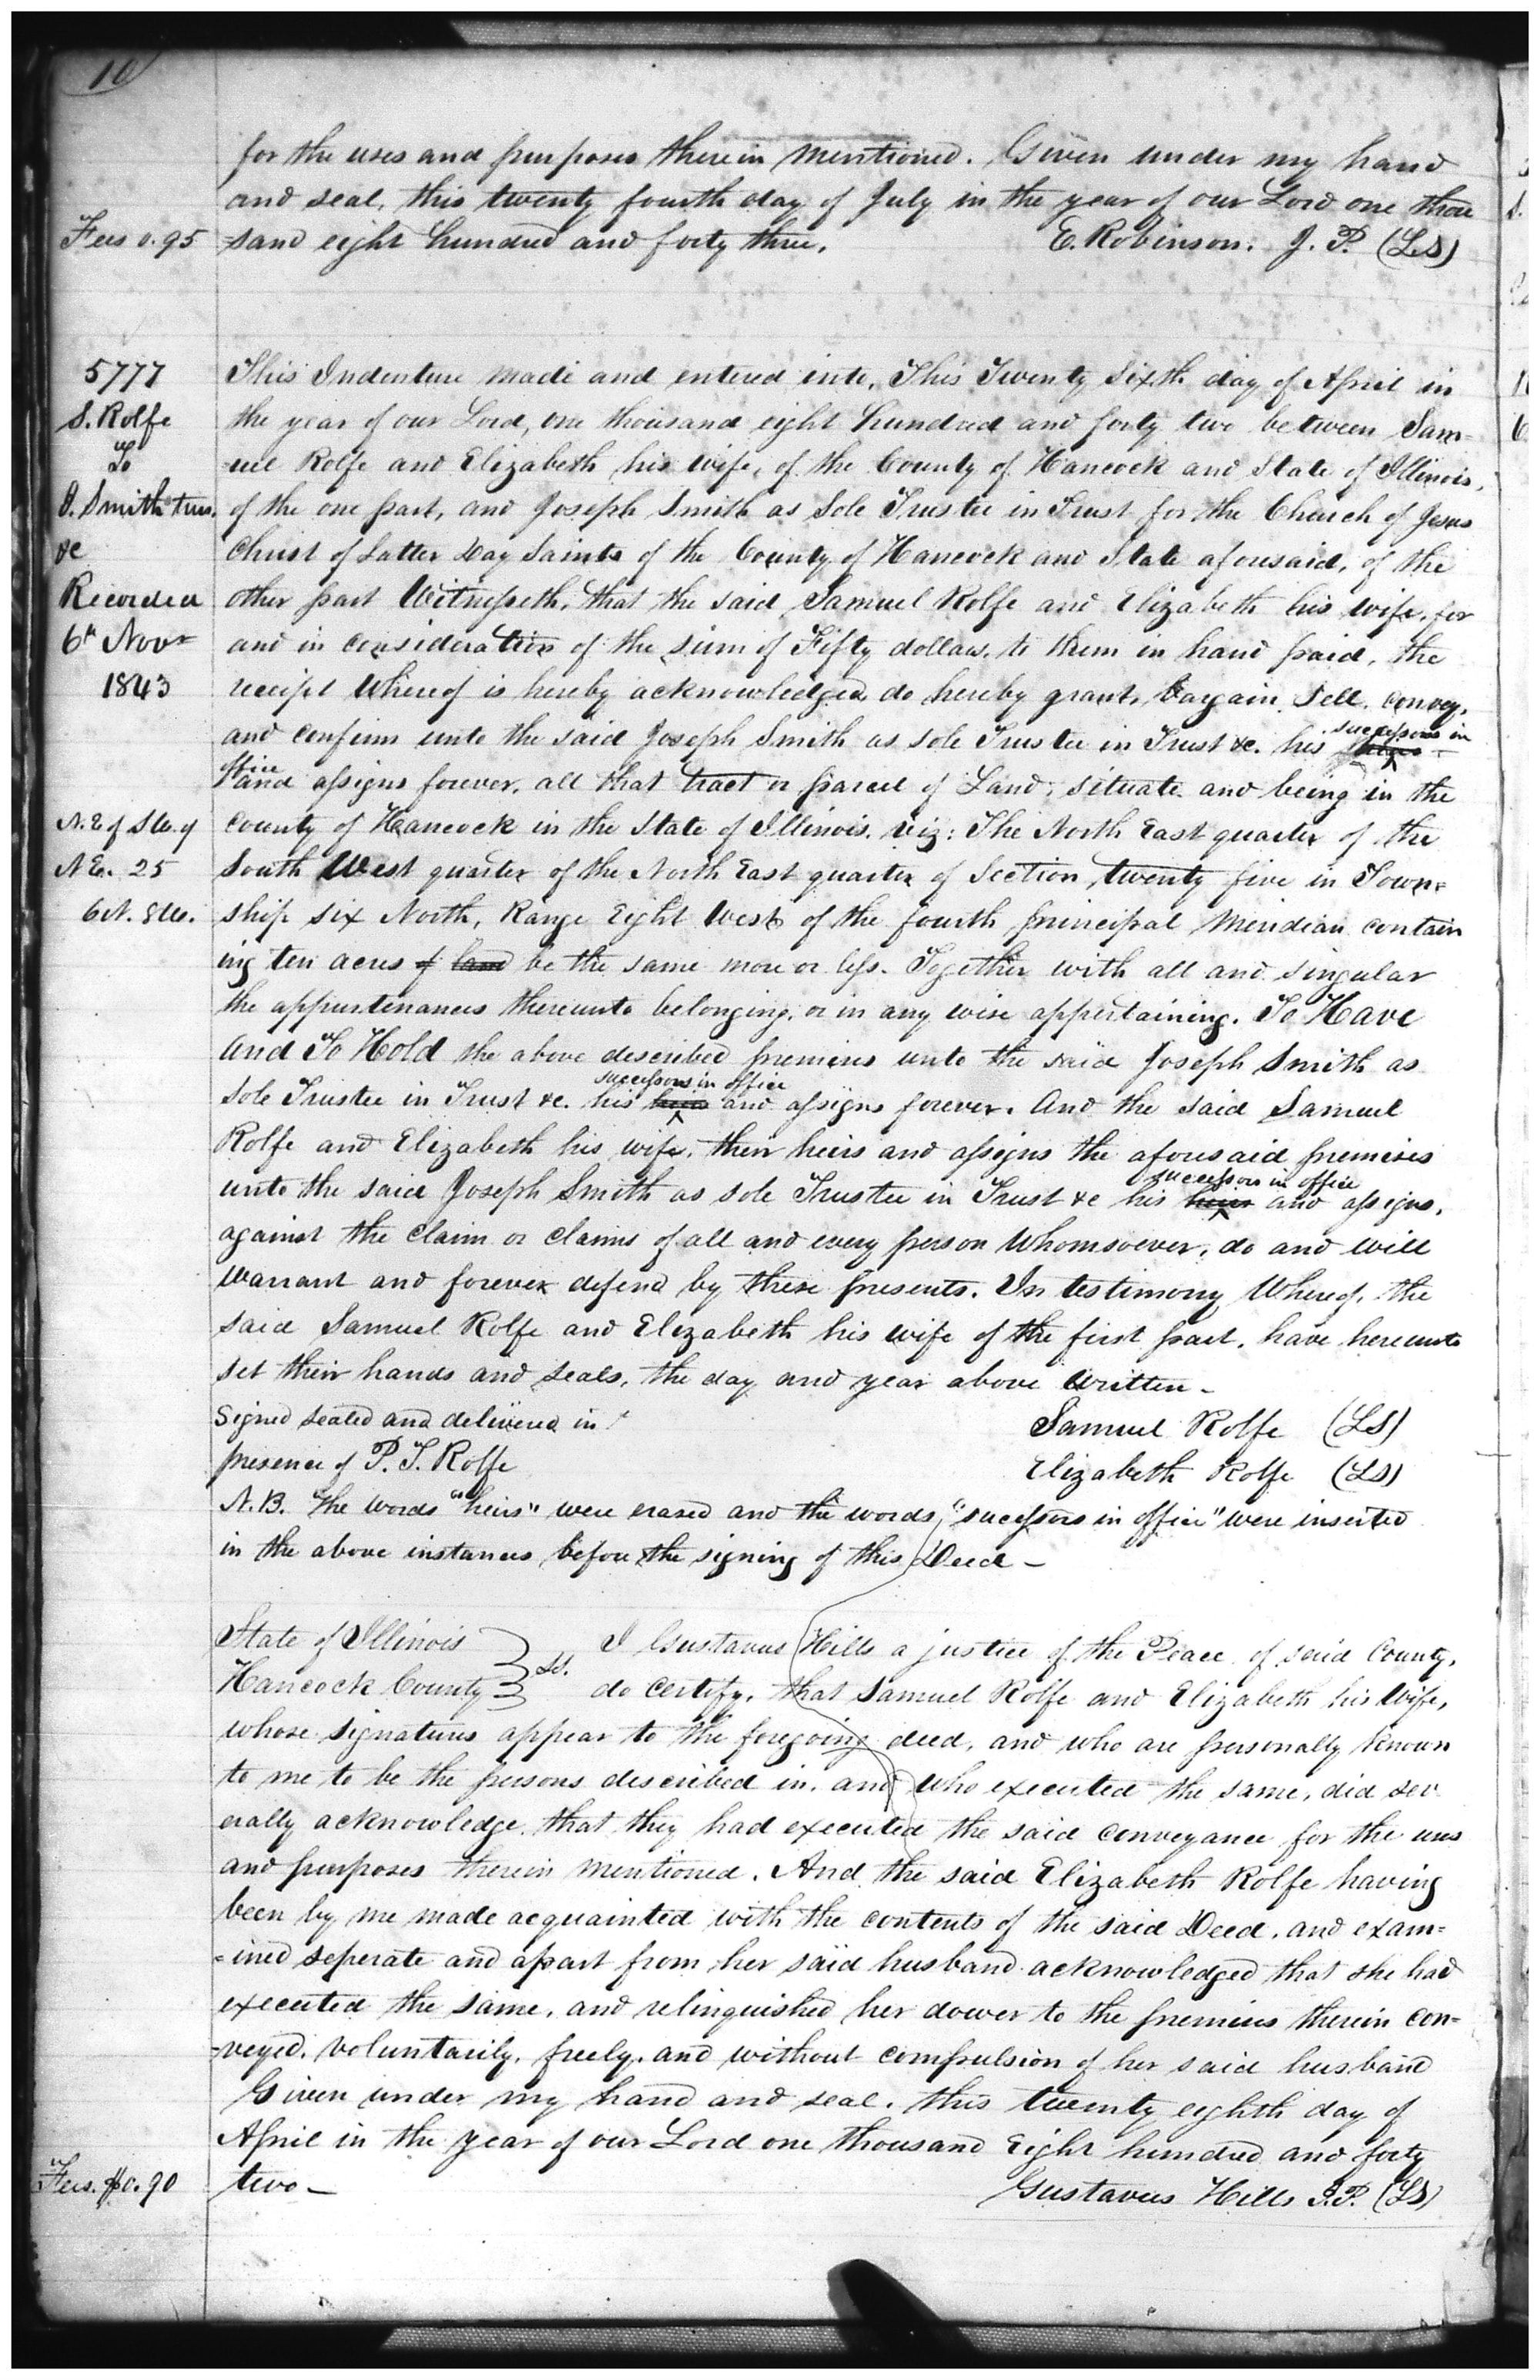 10
for the uses and purposes therein mentioned. Given under my hand
and seal, this twenty fourth day of July in the year of our Lord one thou
Fees 0.95 sand eight hundred and forty three. E. Robinson. J. P. (LS)
5777 This Indenture made and entered into, This Twenty Sixth day of April in
S. Rolfe the year of our Lord, one thousand eight hundred and forty two between Sam-
To -uel Rolfe and Elizabeth his wife, of the County of Hancock and State of Illinois,
J. Smith trus. of the one part, and Joseph Smith as Sole Trustee in Trust for the Church of Jesus
&c Christ of Latter Day Saints of the County of Hancock and State aforesaid, of the
Recorded other part Witnesseth, that the said Samuel Rolfe and Elizabeth his wife, for
6th Novr and in consideration of the sum of Fifty dollars, to them in hand paid, the
1843 receipt whereof is hereby acknowledged do hereby grant, bargain, sell, convey,
and confirm unto the said Joseph Smith as sole Trustee in Trust &c. his heirs successors in
office and assigns forever, all that tract or parcel of Land, situate and being in the
N.E of S.W. of County of Hancock in the State of Illinois, viz: The North East quarter of the
N E. 25 South West quarter of the North East quarter of Section, twenty five in Town=
6 N. 8 W. ship six North, Range Eight West of the fourth principal Meridian contain
ing ten acres of land be the same more or less. Together with all and singular
the appurtenances thereunto belonging, or in any wise appertaining. To Have
And To Hold the above described premises unto the said Joseph Smith as
Sole Trustee in Trust &c. his heirs successors in office and assigns forever. And the said Samuel
Rolfe and Elizabeth his wife, their heirs and assigns the aforesaid premises
unto the said Joseph Smith as sole Trustee in Trust &c his heirs successors in office and assigns,
against the claim or claims of all and every person whomsoever, do and will
warrant and forever defend by these presents. In testimony Whereof, the
said Samuel Rolfe and Elizabeth his wife of the first part, have hereunto
set their hands and seals, the day and year above written-
Signed sealed and delivered in Samuel Rolfe (LS)
presence of P. T. Rolfe Elizabeth Rolfe (LS)
N.B. The words "heirs" were erased and the words "successors in office" were inserted
in the above instances before the signing of this Deed -
State of Illinois } ss. I Gustavus Hills a justice of the Peace of said County,
Hancock County } do certify, that Samuel Rolfe and Elizabeth his Wife,
whose signatures appear to the foregoing deed, and who are personally known
to me to be the persons described in, and who executed the same, did sev
erally acknowledge that they had executed the said conveyance for the uses
and purposes therein mentioned. And the said Elizabeth Rolfe having
been by me made acquainted with the contents of the said Deed, and exam=
=ined seperate and apart from her said husband acknowledged that she had
executed the same, and relinquished her dower to the premises therein con=
=veyed, voluntarily, freely, and without compulsion of her said husband
Given under my hand and seal, this twenty eighth day of
April in the year of our Lord one thousand Eight hundred and forty
Fees. $0.90 two- Gustavus Hills J.P. (LS)